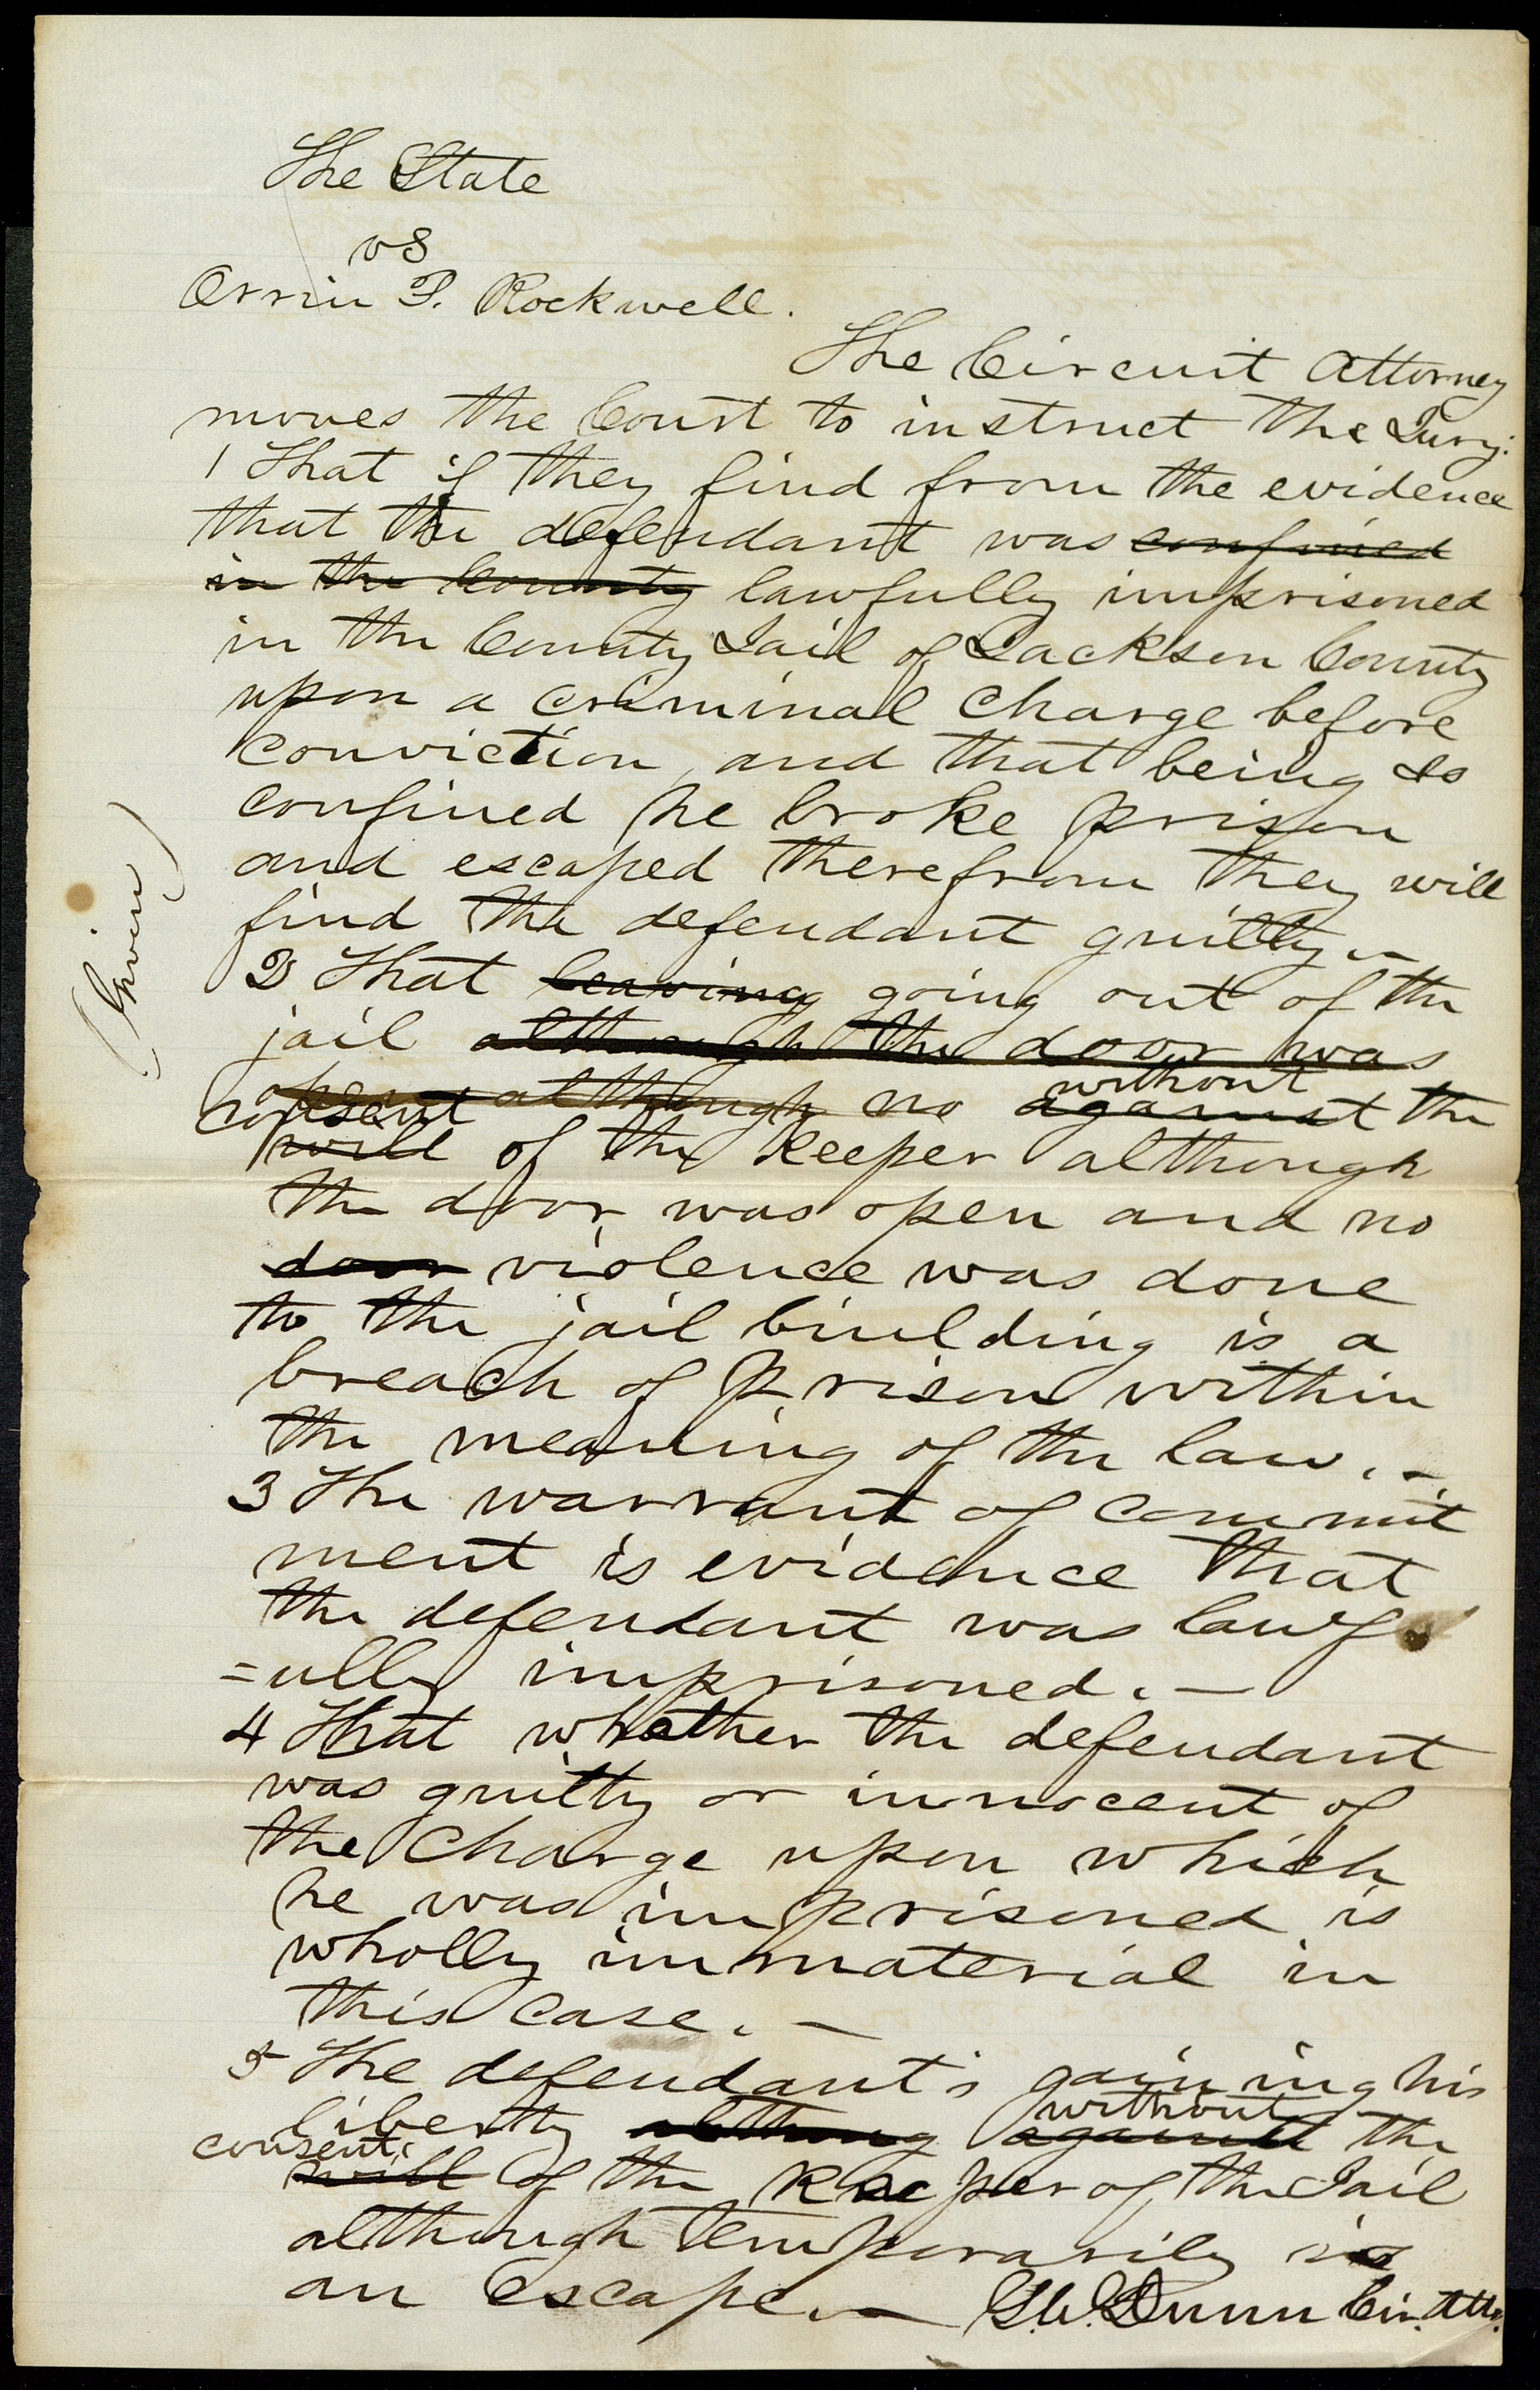 The State
vs
Orrin P. Rockwell.
The Circuit Attorney
moves the Court to instruct the Jury:
1 That if they find from the evidence
that the defendant was confined
in the County lawfully imprisoned
in the County Jail of Jackson County
upon a criminal charge before
conviction, and that being so
confined he broke prison
and escaped therefrom they will
find the defendant guilty.—
2 That leaving going out of the
jail although the door was
open although no against without the
consent will of the keeper although
the door was open and no
door violence was done
to the jail building is a
breach of prison within
the meaning of the law.—
3 The warrant of commit
ment is evidence that
the defendant was lawf
=ully imprisoned.—
4 That whether the defendant
was guilty or innocent of
the charge upon which
he was imprisoned is
wholly immaterial in
this case.—
5 The defendant's gaining his
liberty althoug against without the
consent will of the keeper of the Jail
although temporarily is
an escape.— G.W. Dunn Cir. Atto.
(Given)